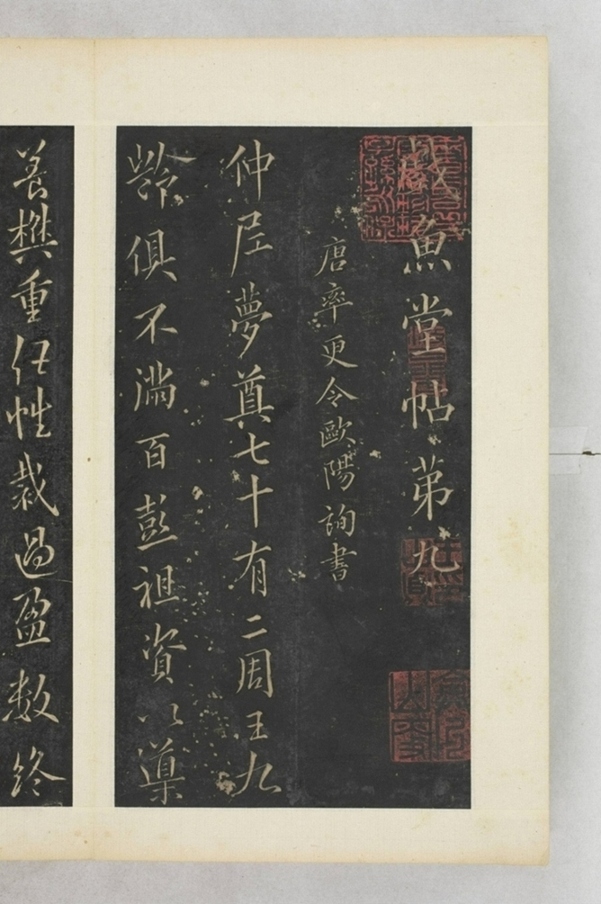 戲魚堂帖第九
唐率更令歐陽詢書
仲尼夢奠七十有二周王九
齡俱不滿百彭祖資以導
養樊重任性裁過盈數終